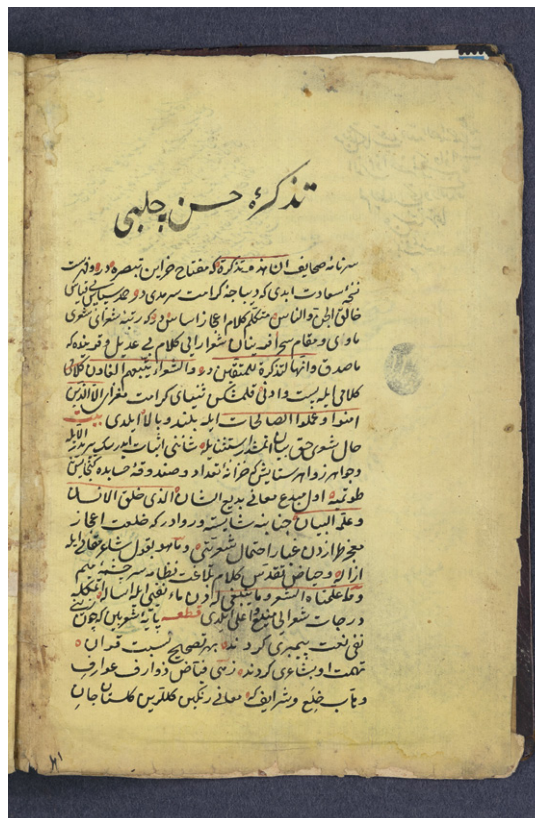 تذكرۀ حسن چلبی
سرنامۀ صحایف ان هذه تذكرة كه مفتاح خزاین تبصره در و فهرست
نسخۀ سعادت ابدی كه دیباجۀ كرامت سرمدی در حمد و سپاس بی قیاس
خالق الجن والناس متكلم كلام اعجاز اساس در كه رتبۀ شعرای
ماوای و مقام سحر آفرینان شعارایی كلام بی عدیل و قرینده كه
ماصدق وانها لتذكرة للمتقین در والشعراء یتبعهم الغاون كلامی
كلامی ایله پست و ادنی قلمشكن ثنیای كرامت الا الذین
امنوا وعملوا الصالحات ایله بلند و بالا ایلدی بیت
حال شعری حق بیان ایتمشد استثنا یله شاننی اثبات ایدر
وجواهر زواهر ستایش كم خزانۀ تعداد و صندوقۀ حسابده
طوتمیه اول مبدع معانی بدیع الشان الذی خلق الانسان
وعلمه البیان جنابنه شایسته و روادر كه خلعت اعجاز
غبار احتمال شعریتی وما هو بقول شاعر مقالی ایله
ازاله و حیاض تقدس كلام بلاغت نظامنه سرچشمۀ
وما علمناه الشعر وما ینبغی له ماء نفیی ایله اسالۀ
درجات شعرایی و اعلی ایلدی قطعه پایۀ شعر بین كه چون
نفی نعت پیمبری كردند بهر تصحیح نسبت قران
تهمت او بشاعری كردند فیاض ذوارف عوارف
و خلع و شرایف كه معانی رنكین كللرین كلستان جان